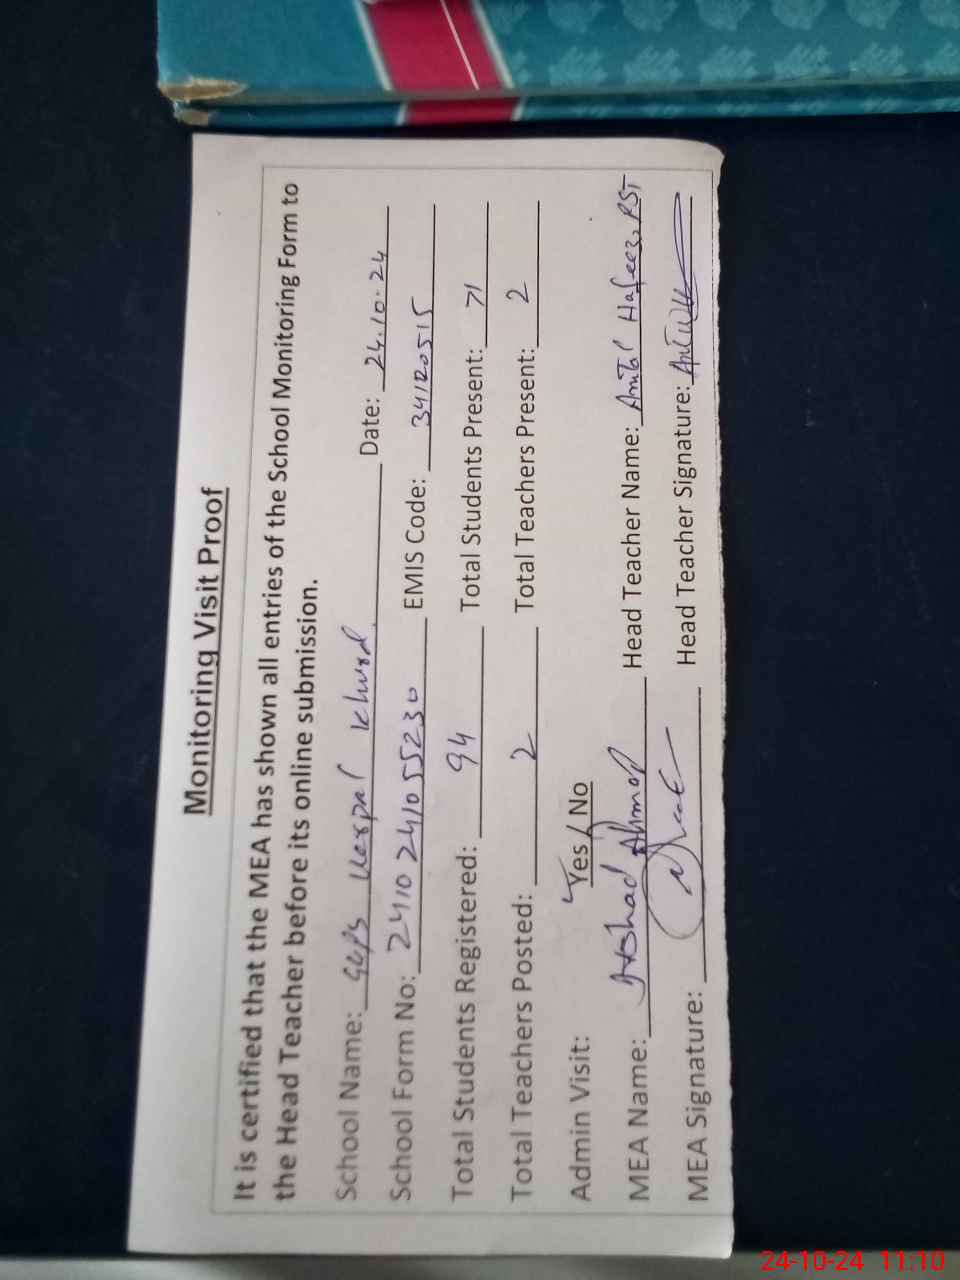 Monitoring Visit Proof
It is certified that the MEA has shown all entries of the School Monitoring Form to
the Head Teacher before its online submission.
School Name: GGPS Verpal Khurd Date: 24.10.24
School Form No: 2410241055230 EMIS Code: 34120515
Total Students Registered: 94 Total Students Present: 71
Total Teachers Posted: 2 Total Teachers Present: 2
Admin Visit: Yes / No
MEA Name: Arshad Ahmad Head Teacher Name: Hafeez, PST
MEA Signature: Head Teacher Signature:
24-10-24 11:10